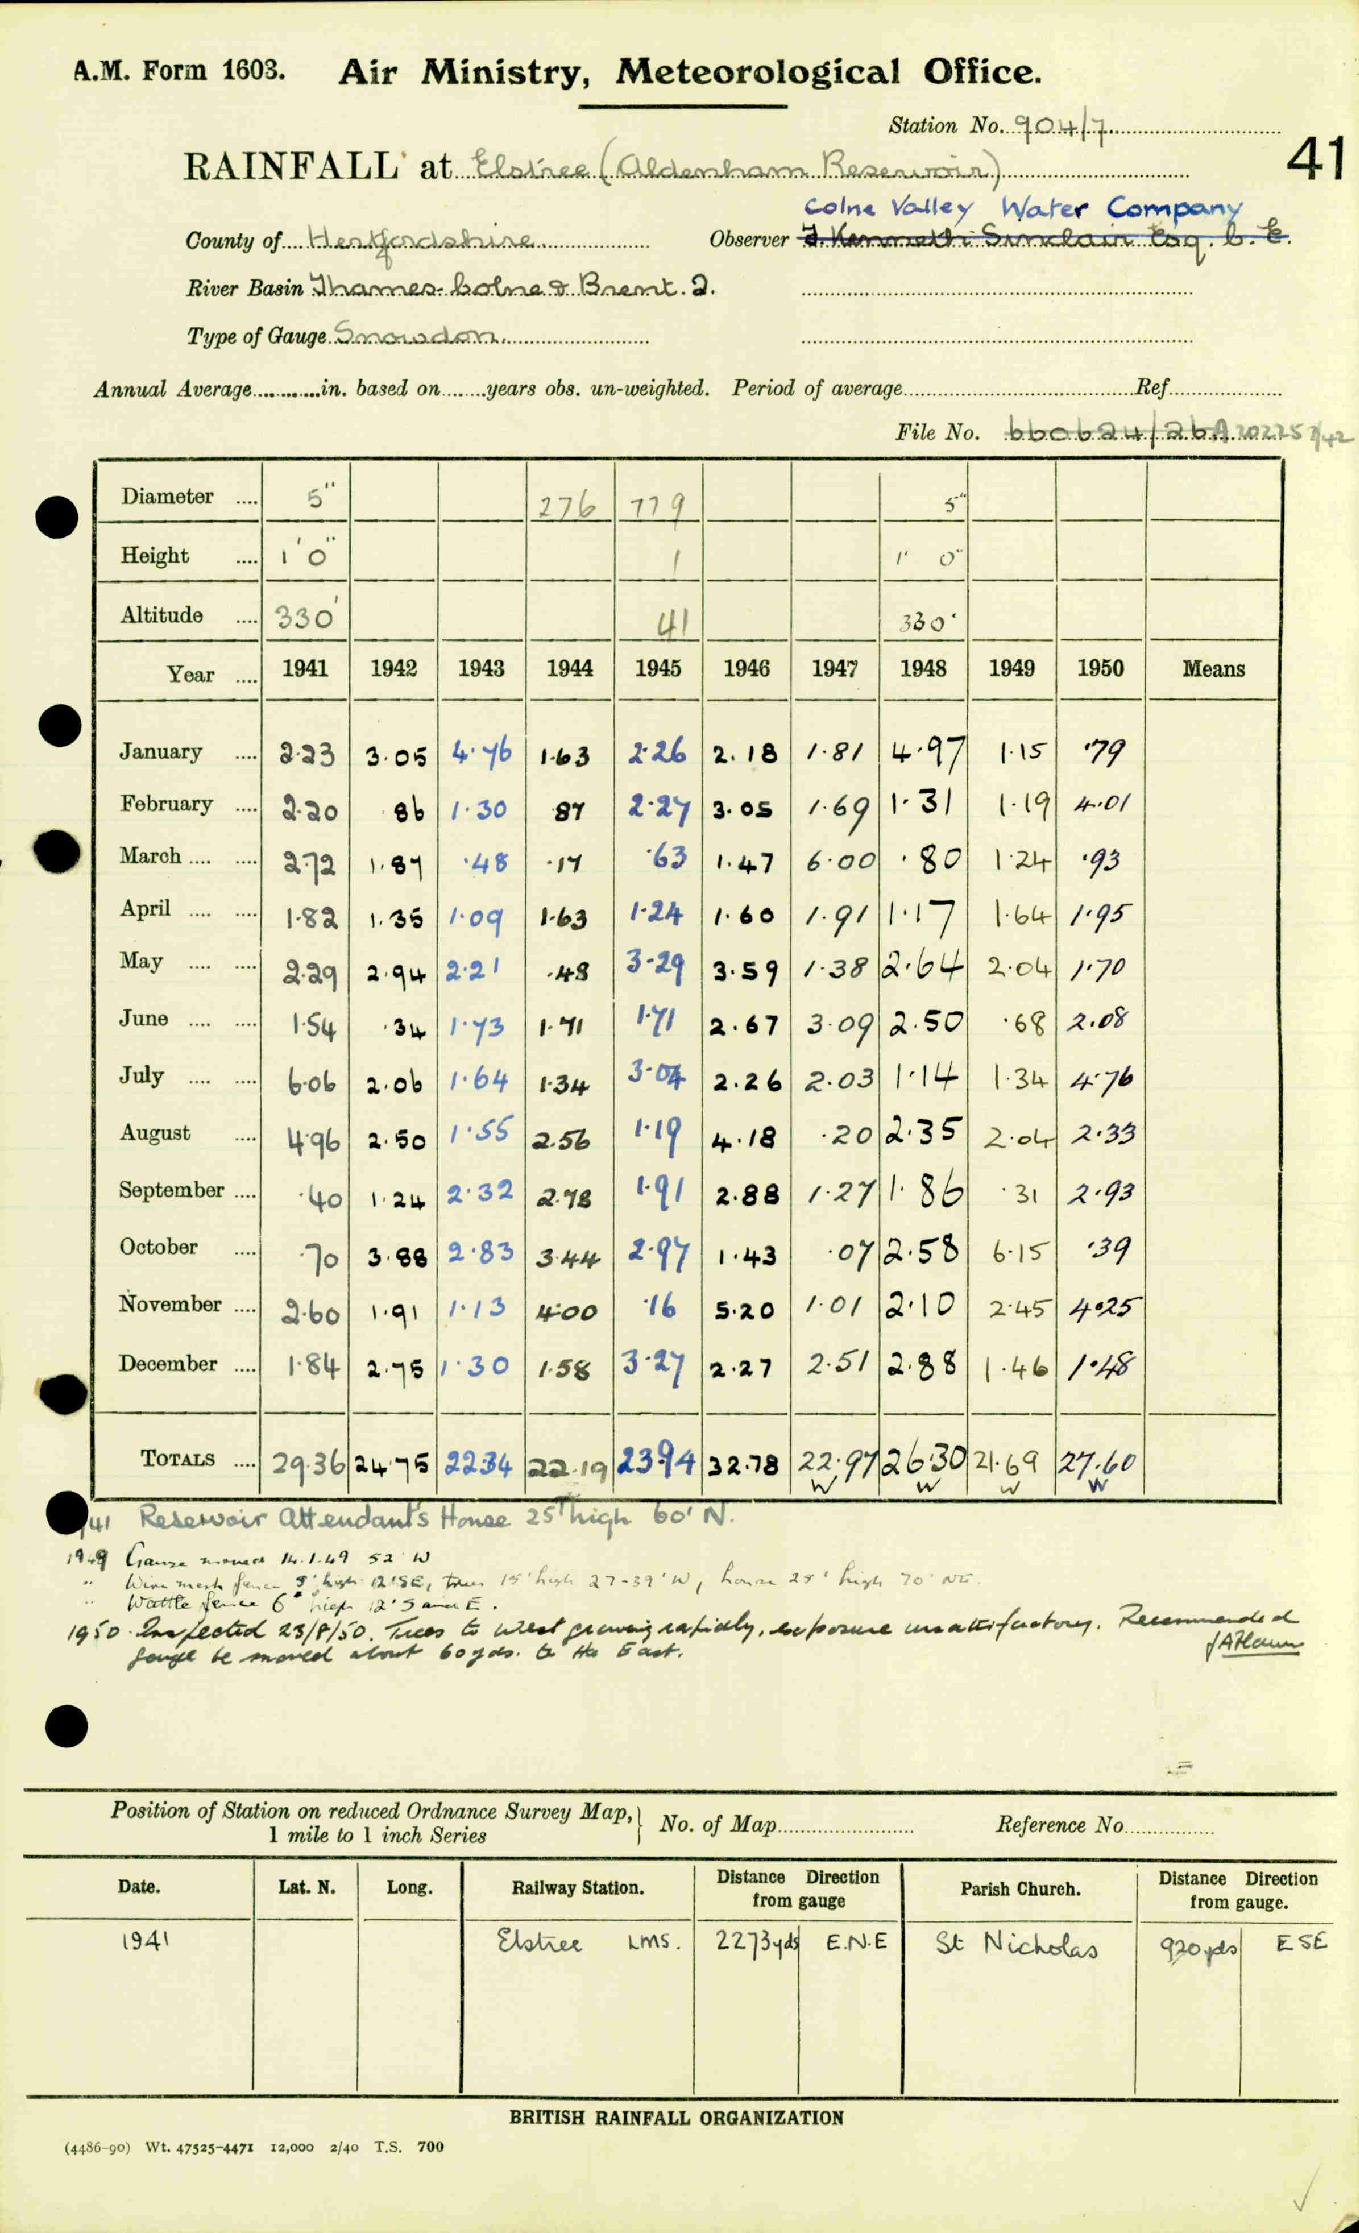 A.M. Form 1603. Air Ministry, Meteorological Office.
Station No. 904/7
41
RAINFALL at Elstree (Aldenham Reservoir)
Colne Valley Water Company
County of Hertfordshire Observer J. Kenneth Sinclair Esq. C. E.
River Basin Thames-Colne & Brent. 2.
Type of Gauge Snowdon
Annual Average in. based on years obs. un-weighted. Period of average Ref
File No. 660624/26 A202253/42
Diameter 5" 276 779 5"
Height 1'0" 1 1' 0"
Altitude 330' 41 330'
Year 1941 1942 1943 1944 1945 1946 1947 1948 1949 1950 Means
January 2.23 3.05 4.76 1.63 2.26 2.18 1.81 4.97 1.15 .79
February 2.20 .86 1.30 .87 2.27 3.05 1.69 1.31 1.19 4.01
March 2.72 1.87 .48 .17 .63 1.47 6.00 .80 1.24 .93
April 1.82 1.35 1.09 1.63 1.24 1.60 1.91 1.17 1.64 1.95
May 2.29 2.94 2.21 .48 3.29 3.59 1.38 2.64 2.04 1.70
June 1.54 .34 1.73 1.71 1.71 2.67 3.09 2.50 .68 2.08
July 6.06 2.06 1.64 1.34 3.04 2.26 2.03 1.14 1.34 4.76
August 4.96 2.50 1.55 2.56 1.19 4.18 .20 2.35 2.04 2.33
September .40 1.24 2.32 2.78 1.91 2.88 1.27 1.86 .31 2.93
October .70 3.88 2.83 3.44 2.97 1.43 .07 2.58 6.15 .39
November 2.60 1.91 1.13 4.00 .16 5.20 1.01 2.10 2.45 4.25
December 1.84 2.75 1.30 1.58 3.27 2.27 2.51 2.88 1.46 1.48
TOTALS 29.36 24.75 22.34 22.19 23.94 32.78 22.97 26.30 21.69 27.60
W W W W
/41 Reservoir Attendant's House 25' high 60' N.
1949 Gauge moved 14.1.49 52' W
" Wire mesh fence 5' high 12'SE, trees 15' high 27-39' W, house 25' high 70' NE.
" Wattle fence 6' high 12' S and E.
1950 Inspected 23/8/50. Trees to west growing rapidly, exposure unsatisfactory. Recommended
gauge be moved about 60yds. to the East.
Position of Station on reduced Ordnance Survey Map, 1 mile to 1 inch Series No. of Map Reference No
Date. Lat. N. Long. Railway Station. Distance Direction from gauge Parish Church. Distance Direction from gauge.
1941 Elstree LMS. 2273yds E.N.E St Nicholas 920yds ESE
BRITISH RAINFALL ORGANIZATION
(4486-90) Wt. 47525-4471 12,000 2/40 T.S. 700